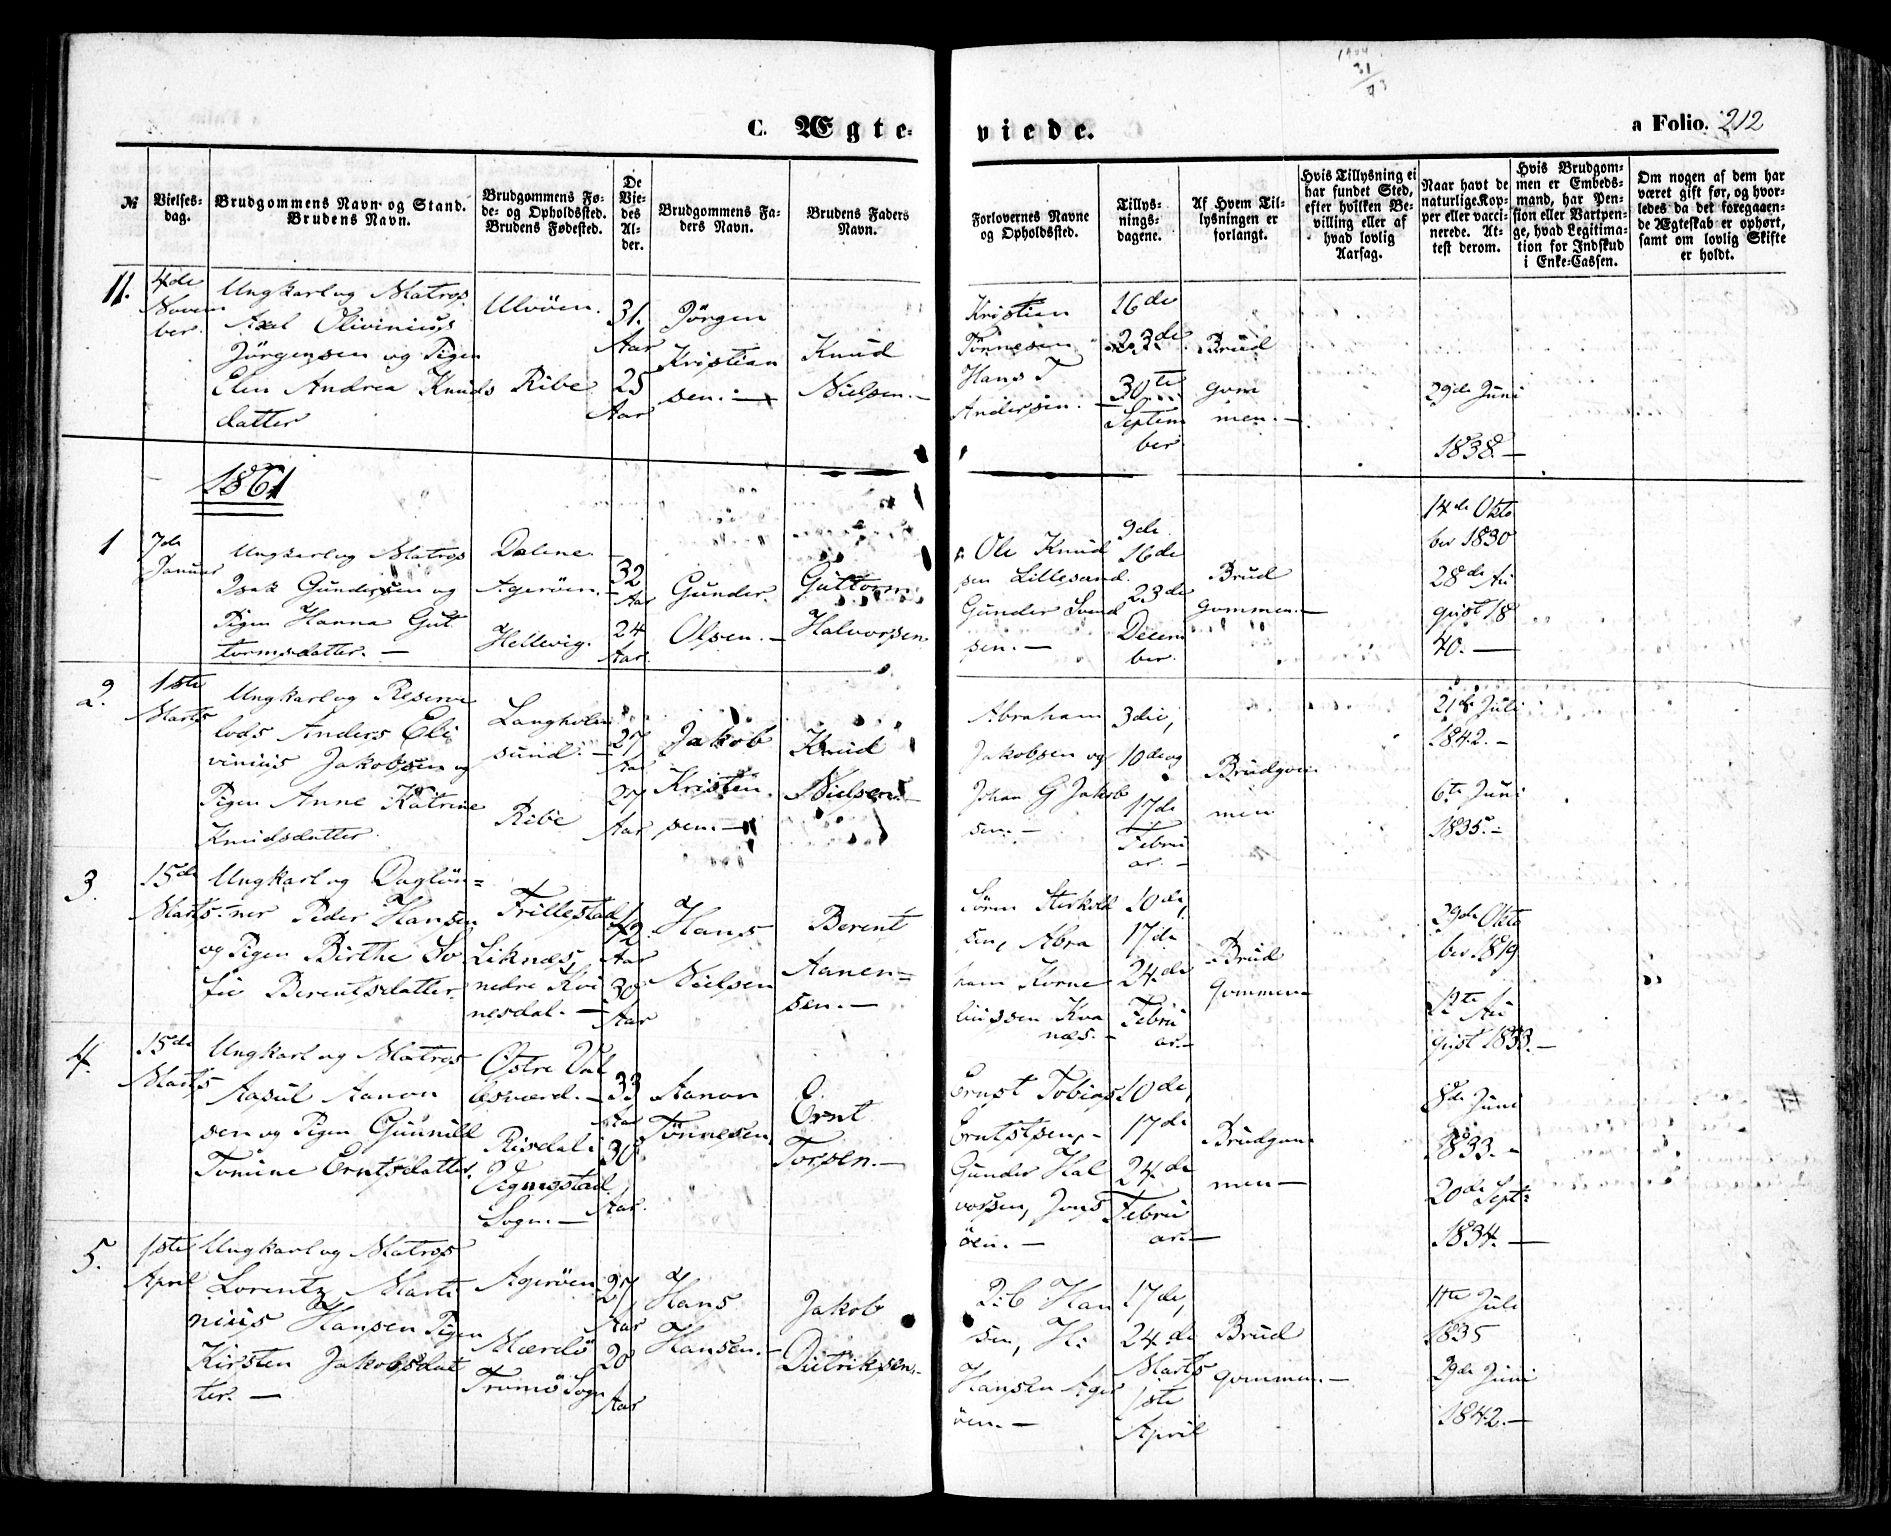 C. Ægte-
viede.
a Folio. 212
№
Vielses-
dag.
Brudgommens Navn og Stand.
Brudens Navn.
Brudgommens Fø-
de- og Opholdssted.
Brudens Fødested.
De
Vie-
des
Al-
der.
Brudgommens Fa-
ders Navn.
Brudens Faders
Navn.
Forlovernes Navne
og Opholdssted.
Tillys-
nings-
dagene.
Af Hvem Til-
lysningen er
forlangt.
Hvis Tillysning ei
har fundet Sted,
efter hvilken Be-
villing eller af
hvad lovlig
Aarsag.
Naar havt de
naturlige Kop-
per eller vacci-
nerede. At-
test derom.
Hvis Brudgom-
men er Embeds-
mand, har Pen-
sion eller Vartpen-
ge, hvad Legitima-
tion for Indskud
i Enke-Cassen.
Om nogen af dem har
været gift før, og hvor-
ledes da det foregaaen-
de Ægteskab er ophørt,
samt om lovlig Skifte
er holdt.
11.
4de
Novem
ber.
Ungkarl og Matros
Axel Olivinius
Jörgensen og Pigen
Elen Andrea Knuds
datter
Ulvöen.
Ribe
31.
Aar
25
Aar
Jörgen
Kristian
sen. —
Knud
Nielsen. —
Kristian
Tönnesen
Hans T
Andersen. —
16de
23de
30te
Septem
ber
Brud
gom
men. —
29de Juni
1838. —
1861
1
7de
Januar
Ungkarl og Matros
Isak Gundersen og
Pigen Hanna Gut
tormsdatter. —
Dalene —
Ageröen. —
Hellevig.
32
Aar
24
Aar.
Gunder.
Olsen. —
Guttorm
Halvorsen
Ole Knud
sen Lillesand.
Gunder Svend
sen. —
9de
16de
23de
Decem
ber.
Brud
gommen. —
14de Okto
ber 1830
28de Au
gust 18
40. —
2.
1ste
Marts
Ungkarl og Reserve
lods Anders Oli
vinius Jakobsen og
Pigen Anne Katrine
Knudsdatter.
Langholm
sund. —
Ribe
27
Aar
27
Aar
Jakob
Kristen.
sen. —
Knud
Nielsen. —
Abraham
Jakobsen og
Johan G Jakob
sen. —
3die,
10de og
17de
Febru
ar. —
Brudgom
men
21de Juli
1842. —
6te Juni
1835. —
3.
15de
Marts.
Ungkarl og Daglön=
ner Peder Hansen
og Pigen Birthe So
fie Berentsdatter.
Frillestad
Liknæs,
nedre Kvi
nesdal. —
42
Aar
30
Aar
Hans
Nielsen
Berent
Aanen=
sen. —
Sören
sen, Abra
ham Korne
liussen Kva
næs. —
10de,
17de
24de
Febru
ar. —
Brud
gommen
29de Okto
ber 1819
12te Au
gust 1833. —
4.
15de
Marts
Ungkarl og Matros
Aasul Aanon
sen og Pigen Gunnild
Tomine Erntsdatter.
Östre Val
lesværd. —
Risdal i
Vegusstad
Sogn. —
33
Aar
30
Aar.
Aanon
Tönnesen
Ernt
Torsen. —
Ernst Tobias
Erntstsen, —
Gunder Hal
vorsen, Jons
öen. —
10de,
17de
24de
Febru
ar. —
Brudgom
men —
8de Juni
1833. —
20de Sept=
1834. —
5.
1ste
April
Ungkarl og Matros
Lorentz Marti
nius Hansen Pigen
Kirsten Jakobsdat
ter. —
Ageröen
Mærdö
Tromö Sogn
27
Aar
20
Aar
Hans
Hansen. —
Jakob
Dietriksen. —
Han
sen, H:
Hansen Ager
öen. —
17de,
24de
Marts
1ste
April
Brud
gommen. —
11te Juli
1835
29de Juni
1842. —